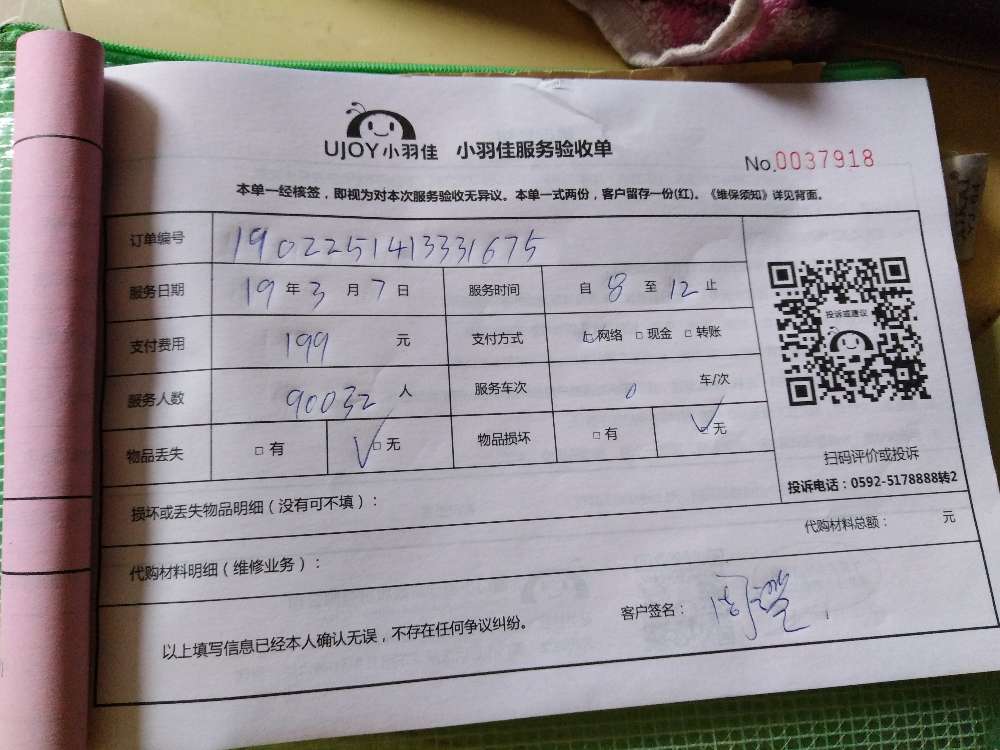 UJOY小羽佳 小羽佳服务验收单
No.0037918
本单一经核签，即视为对本次服务验收无异议。本单一式两份，客户留存一份(红)。《维保须知》详见背面。
订单编号 1902251413331675
服务日期 19年3月7日 服务时间 自8至12止
支付费用 199元 支付方式 □网络 □现金 □转账
服务人数 90032人 服务车次 0 车/次
物品丢失 □有 ✓□无 物品损坏 □有 ✓□无
投诉或建议
扫码评价或投诉
投诉电话：0592-5178888转2
损坏或丢失物品明细（没有可不填）：
代购材料总额： 元
代购材料明细（维修业务）：
以上填写信息已经本人确认无误，不存在任何争议纠纷。 客户签名：